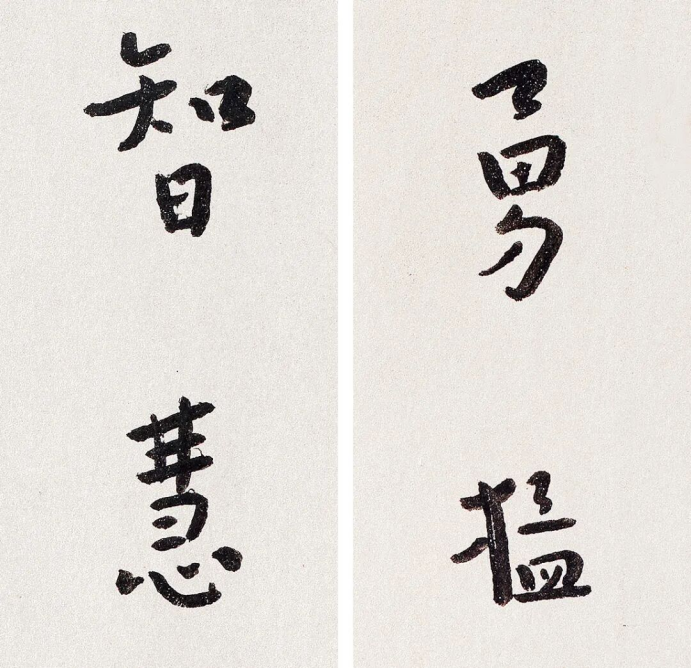 勇猛
智慧